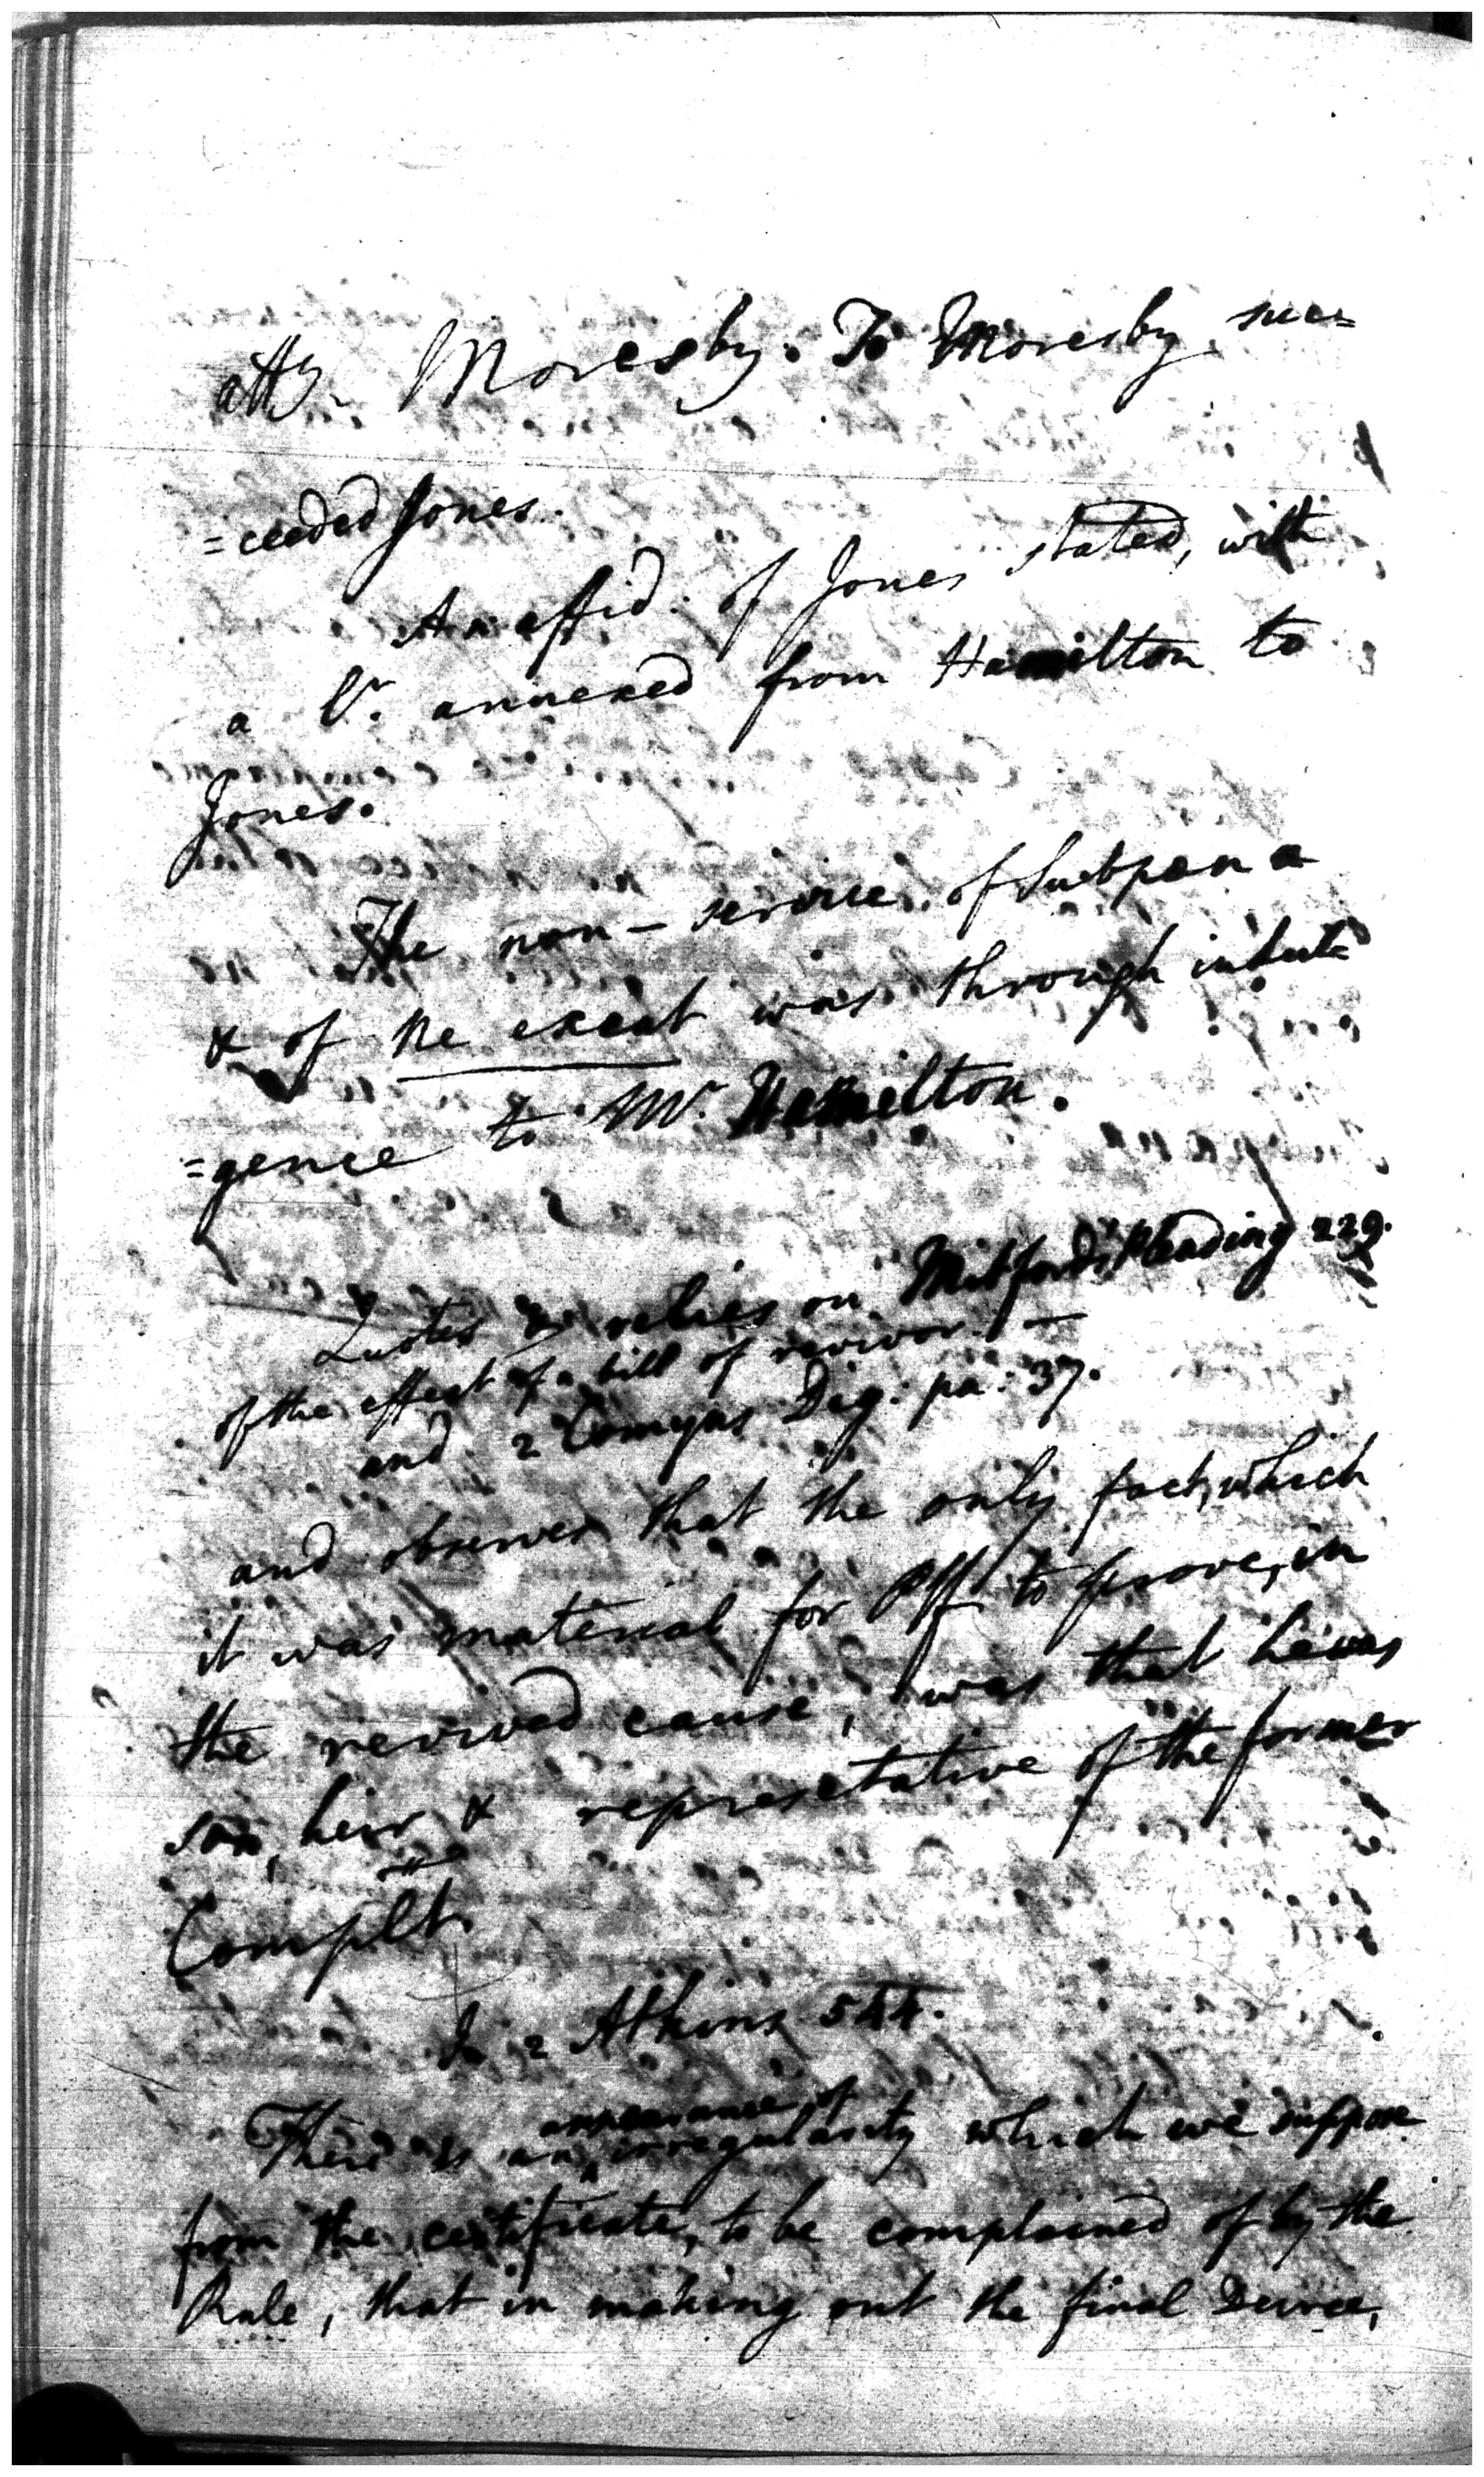 atty. Moresby. To Moresby suc=
=ceeded Jones.
An affid. of Jones stated, with
a Lr. annexed from Hamilton to
Jones.
The non-service of Subpena
& of ne exeat was through indul=
=gence to Mr. Hamilton.
Quotes & relies on Mitford's Pleading 229.
of the effect of a bill of revivor. —
and 2 Comyns Dig: pa: 37.
and observes that the only fact, which
it was material for Plff to prove, in
the revived cause, was that he was
son, heir & representative of the former
Complt.
In 2 Atkins 544.
There is an appearance of irregularity which we suppose
from the certificate, to be complained of by the
Rule, that in making out the final Decree,